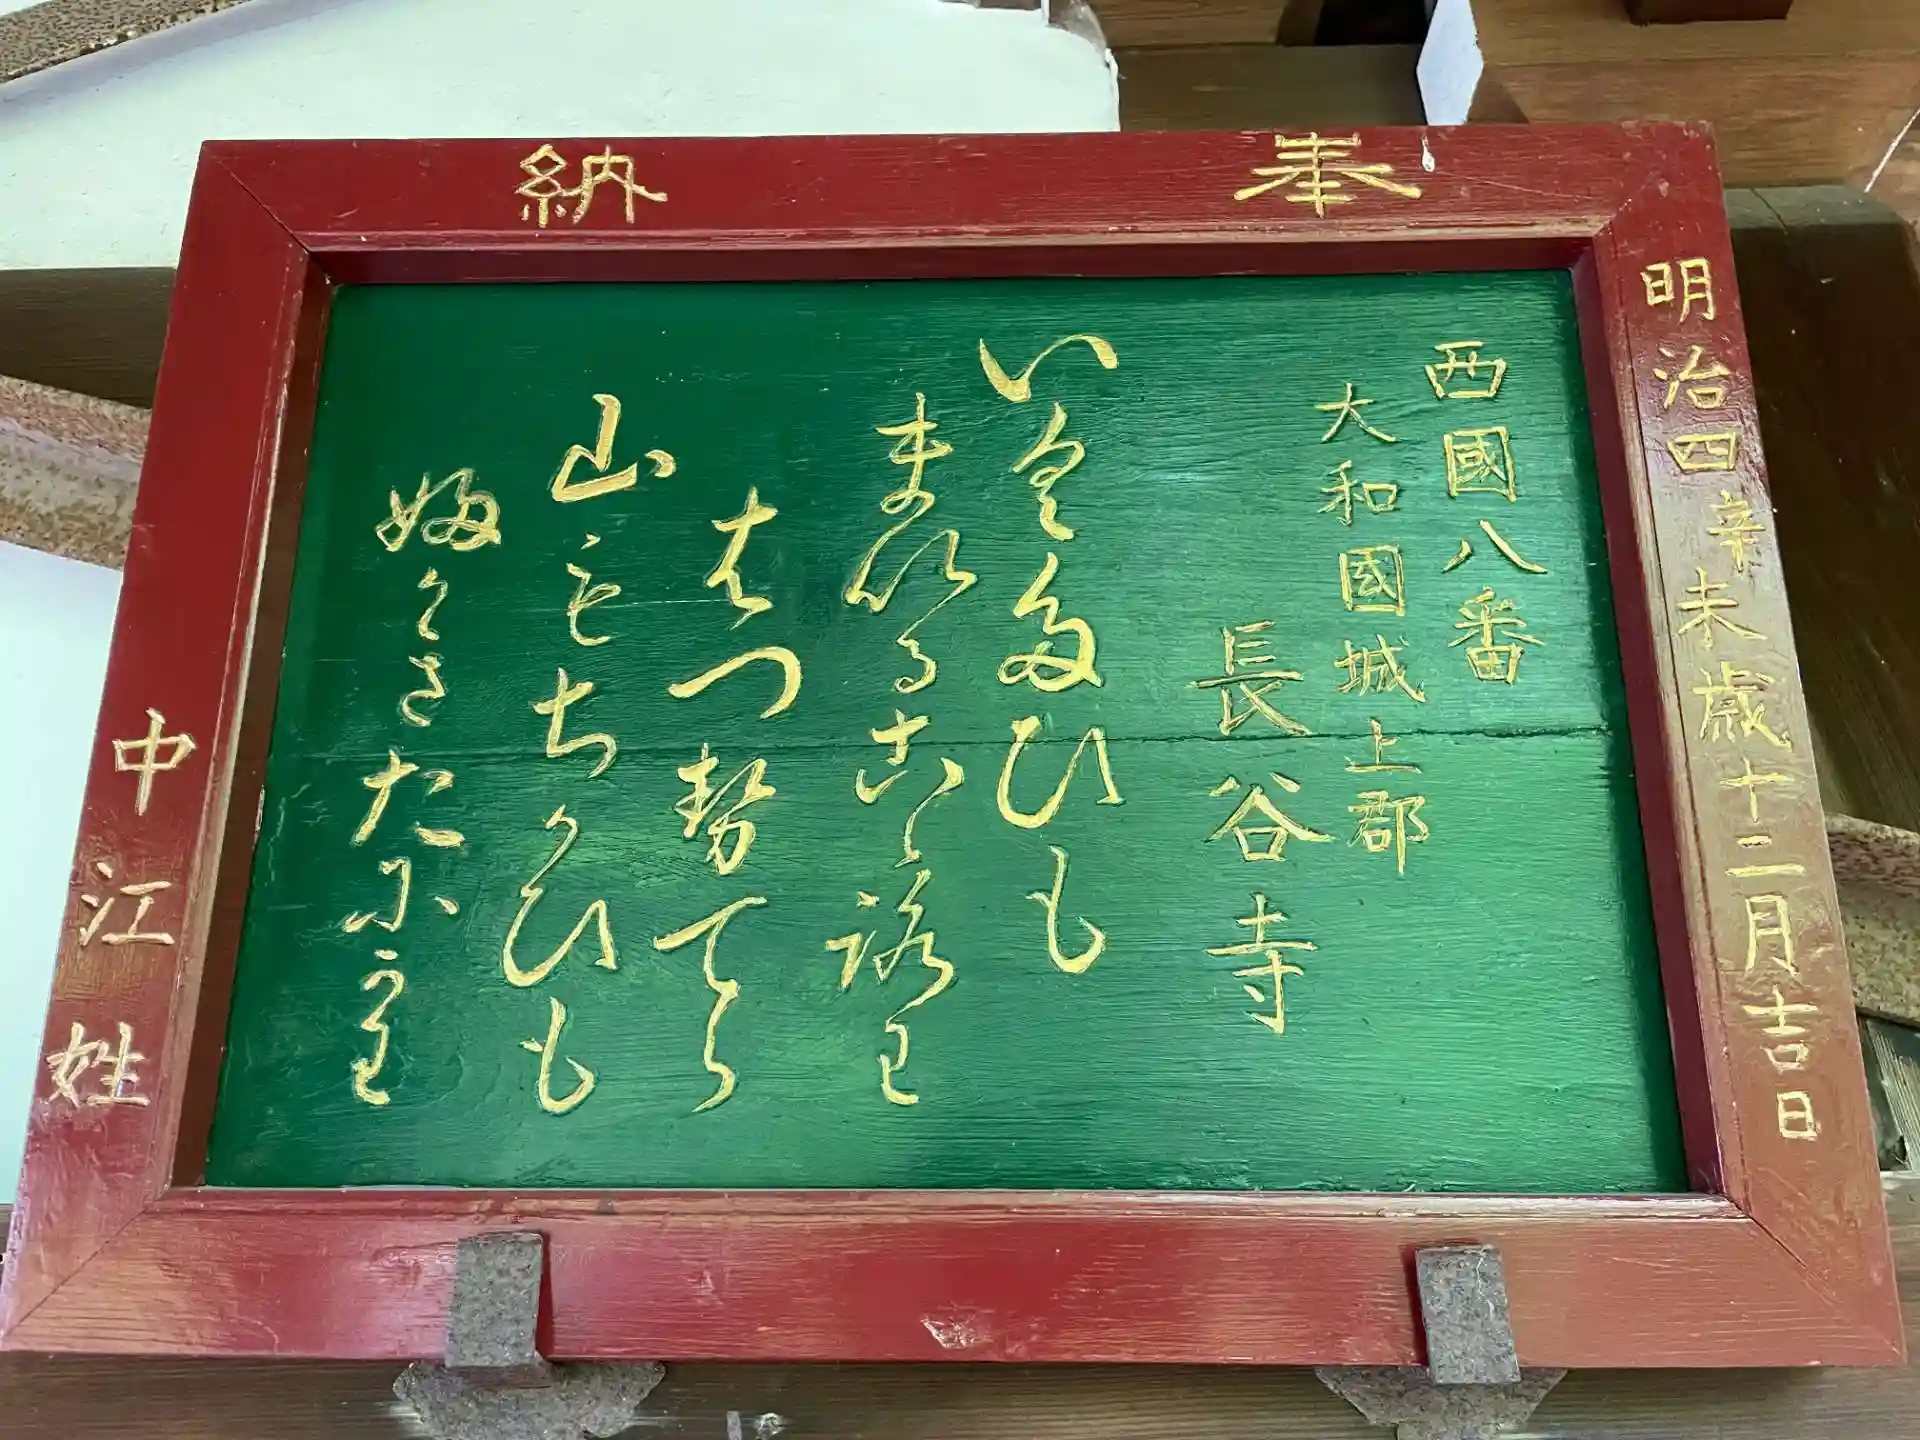 奉納
明治四辛未歳十二月吉日
西國八番
大和國城上郡
長谷寺
いく多ひも
まいるこゝ路わ
はつ勢てら
山もちかひも
婦かきたにかわ
中江姓